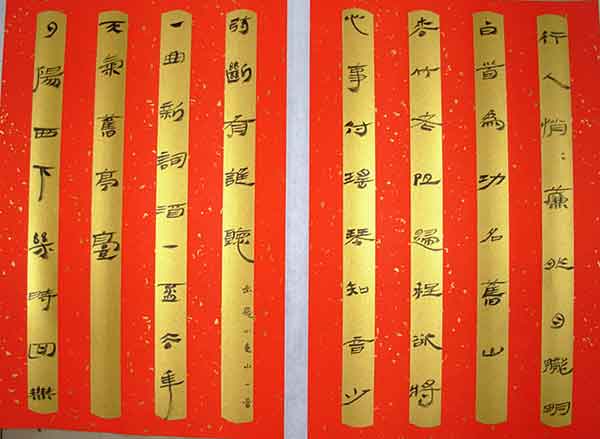 行人悄〻簾外月朧明
白首為功名舊山
松竹老阻歸程欲將
心事付瑤琴知音少
弦斷有誰聽
岳飛小重山一首
一曲新詞酒一盃去年
天氣舊亭臺
夕陽西下幾時回無